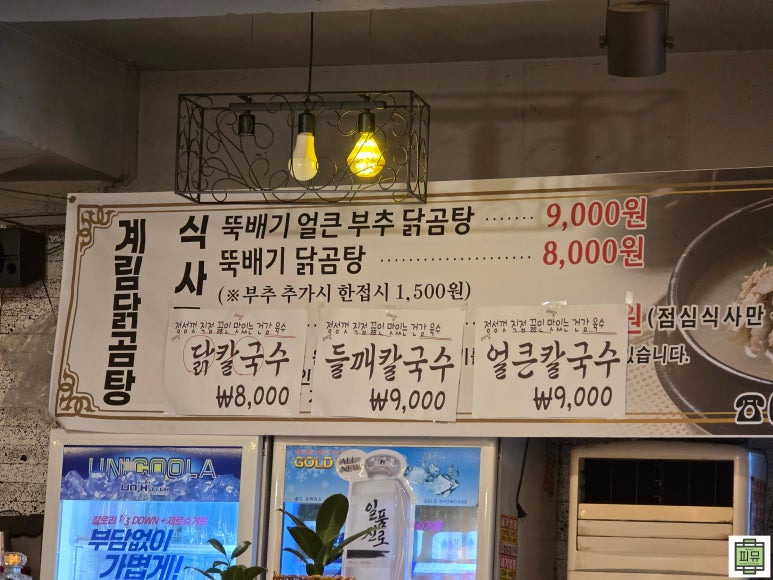 계림닭곰탕
식사
뚝배기 얼큰 부추 닭곰탕 ······· 9,000원
뚝배기 닭곰탕 ······················ 8,000원
(※부추 추가시 한접시 1,500원)
원 (점심식사만
있습니다.
정성껏 직접 끓인 맛있는 건강 육수
닭칼국수
₩8,000
정성껏 직접 끓인 맛있는 건강 육수
들깨칼국수
₩9,000
정성껏 직접 끓인 맛있는 건강 육수
얼큰칼국수
₩9,000
☎
UNICOOLA
칼로리 1/3 DOWN + 제로슈거로
부담없이
가볍게!
GOLD
ALL NEW
일품진로
GOLD SHOWCASE
피뮤